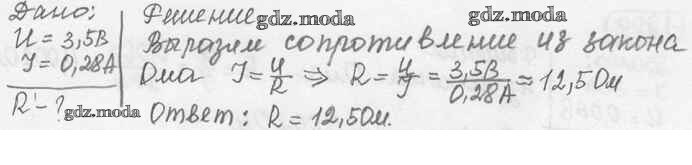 Дано: Решение gdz.moda gdz.moda
U = 3,5В Выразим сопротивление из закона
I = 0,28А Ома I = U/R ⇒ R = U/I = 3,5В/0,28А = 12,5Ом
R - ? gdz.moda Ответ: R = 12,5Ом.